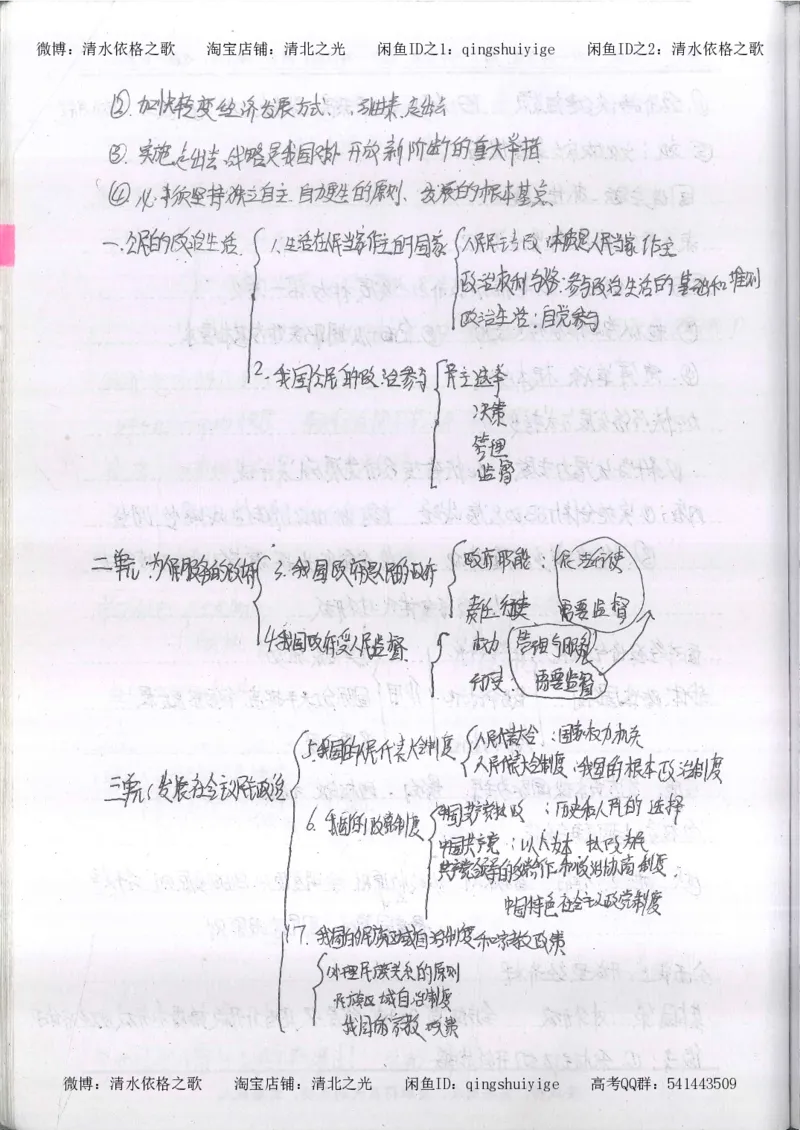 微博：清水依格之歌 淘宝店铺：清北之光 闲鱼ID之1：qingshuiyige 闲鱼ID之2：清水依格之歌
② 加快转变经济发展方式 走出去
③. 实施走出去战略是我国对外开放新阶段的重大举措
④ 必须坚持独立自主.自力更生的原则、发展的根本基点
一.公民的政治生活. 1.生活在人民当家作主的国家 人民民主专政:本质是人民当家作主
政治权利与义务:参与政治生活的基础和准则
政治生活:自觉参与
2.我国公民的政治参与 民主选举
决策
管理
监督
二单元 为人民服务的政府 3.我国政府是人民的政府 政府职能:
责任 需要监督
4.我国政府受人民监督 权力 管理与服务
需要监督
三单元(发展社会主义民主政治 5.我国的人民代表大会制度 人民代表大会:国家权力机关
人民代表大会制度:我国的根本政治制度
6.我国的政党制度 中国共产党执政:历史和人民的选择
中国共产党:以人为本 执政为民
共产党领导的多党合作和政治协商制度,
中国特色社会主义政党制度
7.我国的民族区域自治制度和宗教政策
处理民族关系的原则
民族区域自治制度
我国的宗教政策
微博：清水依格之歌 淘宝店铺：清北之光 闲鱼ID：qingshuiyige 高考QQ群：541443509